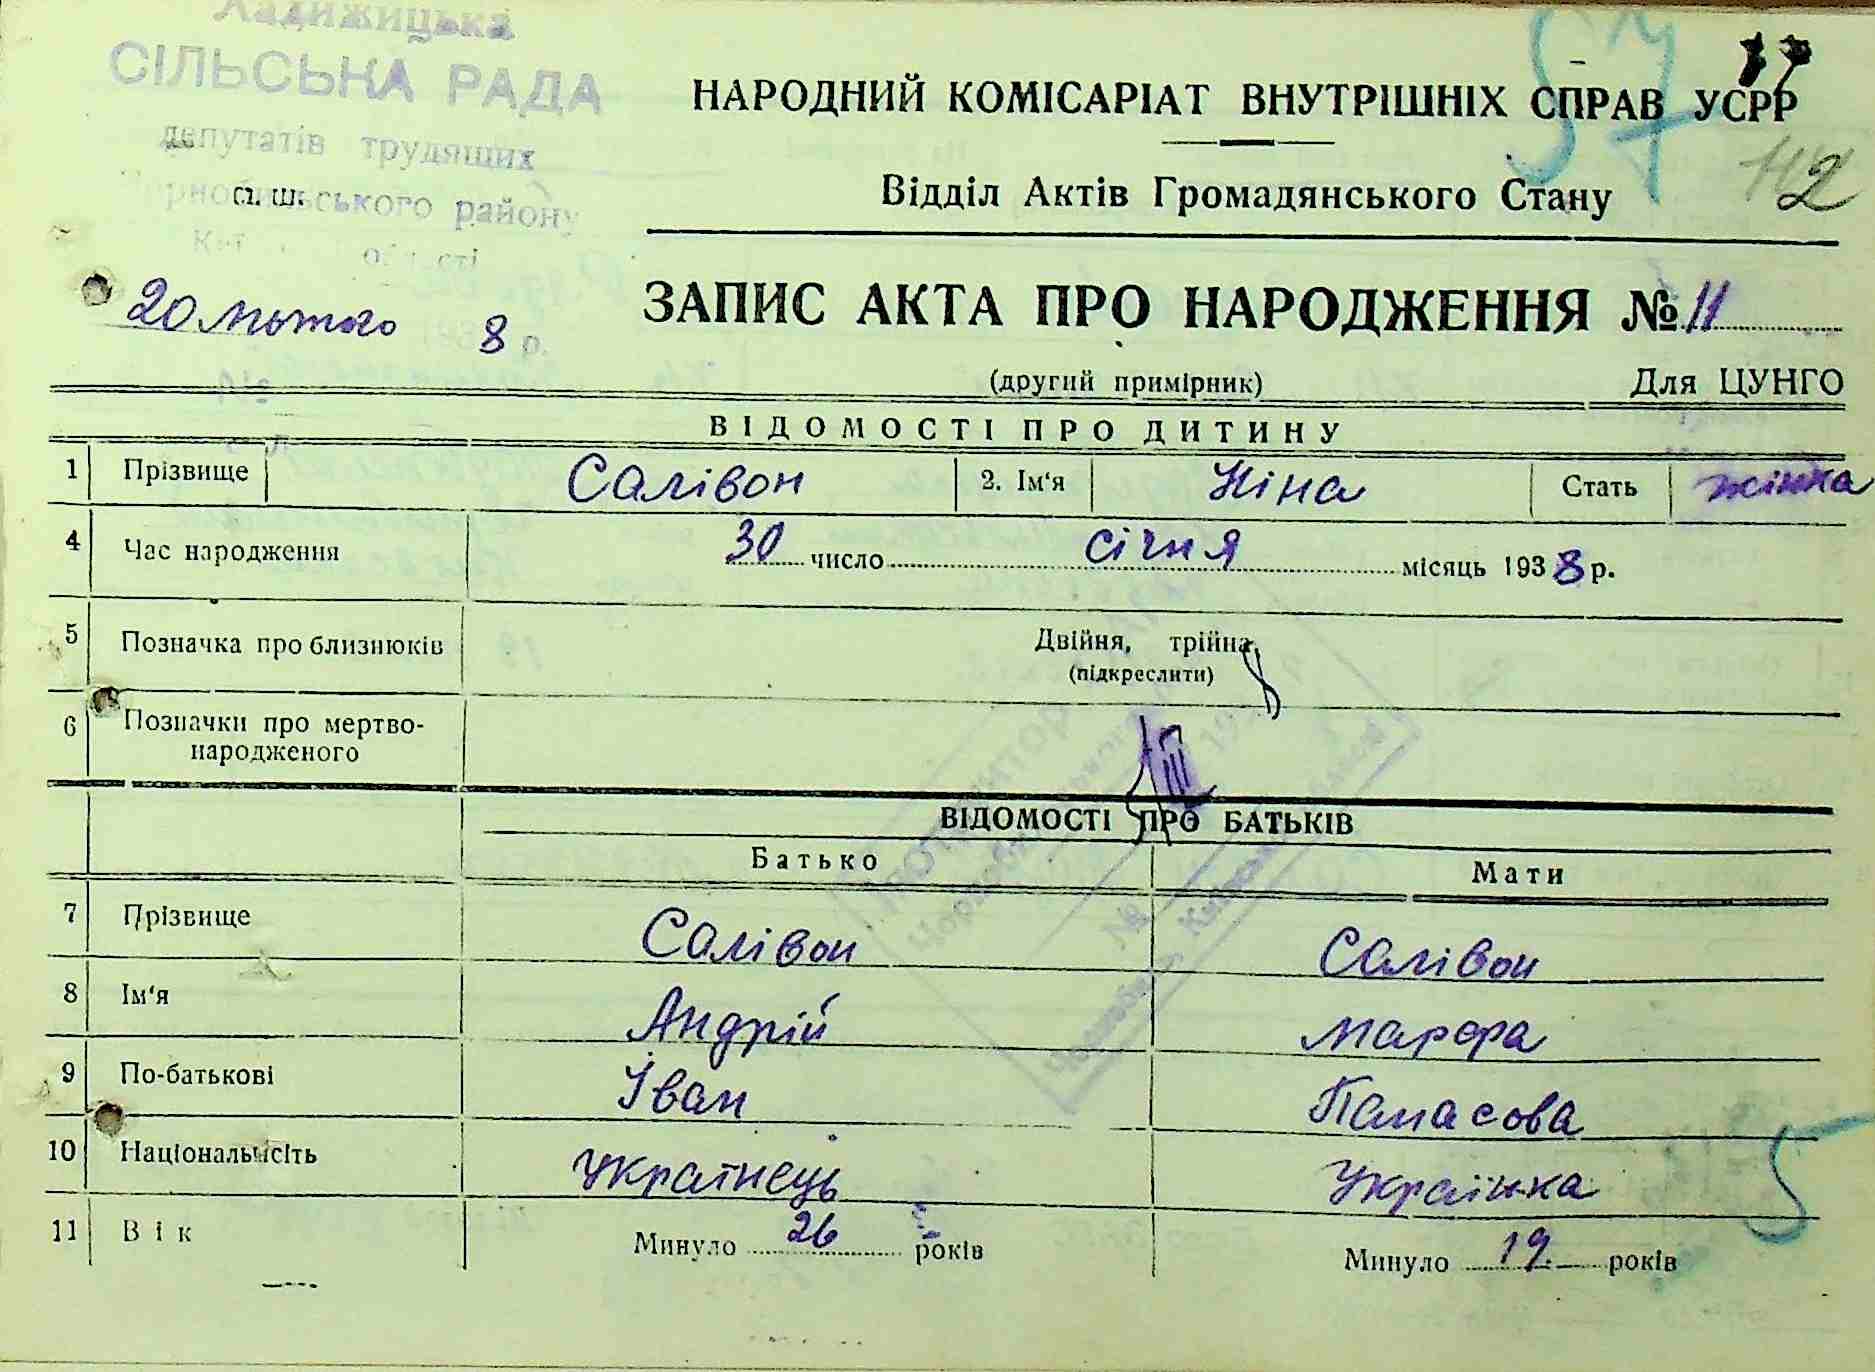 Ладижицька
СІЛЬСЬКА РАДА
депутатів трудящих
Чорнобильського району
області
п. ш.
57
НАРОДНИЙ КОМІСАРІАТ ВНУТРІШНІХ СПРАВ УСРР
Відділ Актів Громадянського Стану
20 лютого 1938 р.
ЗАПИС АКТА ПРО НАРОДЖЕННЯ № 11
(другий примірник) Для ЦУНГО
ВІДОМОСТІ ПРО ДИТИНУ
1 Прізвище Салівон 2. Ім'я Ніна Стать жінка
4 Час народження 30 число січня місяць 1938 р.
5 Позначка про близнюків Двійня, трійня
(підкреслити)
6 Позначки про мертво-
народженого
ВІДОМОСТІ ПРО БАТЬКІВ
Батько Мати
7 Прізвище Салівон Салівон
8 Ім'я Андрій Марфа
9 По-батькові Іван Панасова
10 Національність Українець Українка
5
11 Вік Минуло 26 років Минуло 19 років